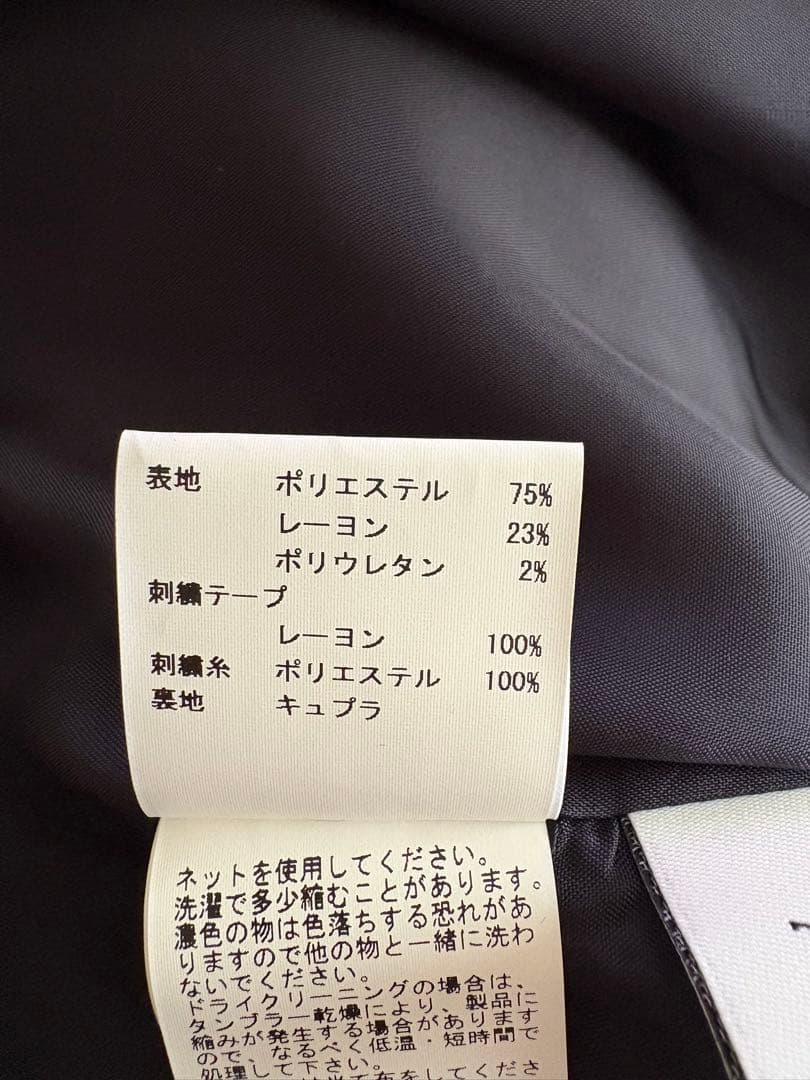 表地 ポリエステル 75%
レーヨン 23%
ポリウレタン 2%
刺繍テープ
レーヨン 100%
刺繍糸 ポリエステル 100%
裏地 キュプラ
ネットを使用してください。
洗濯で多少縮むことがあります。
濃色の物は色落ちする恐れがあ
りますので他の物と一緒に洗わ
ないでください。
ドライクリーニングの場合は、
タンブラー乾燥により、製品に
縮みが発生する場合があります
ので、なるべく低温・短時間で
処理して下さい。
て布をしてくださ